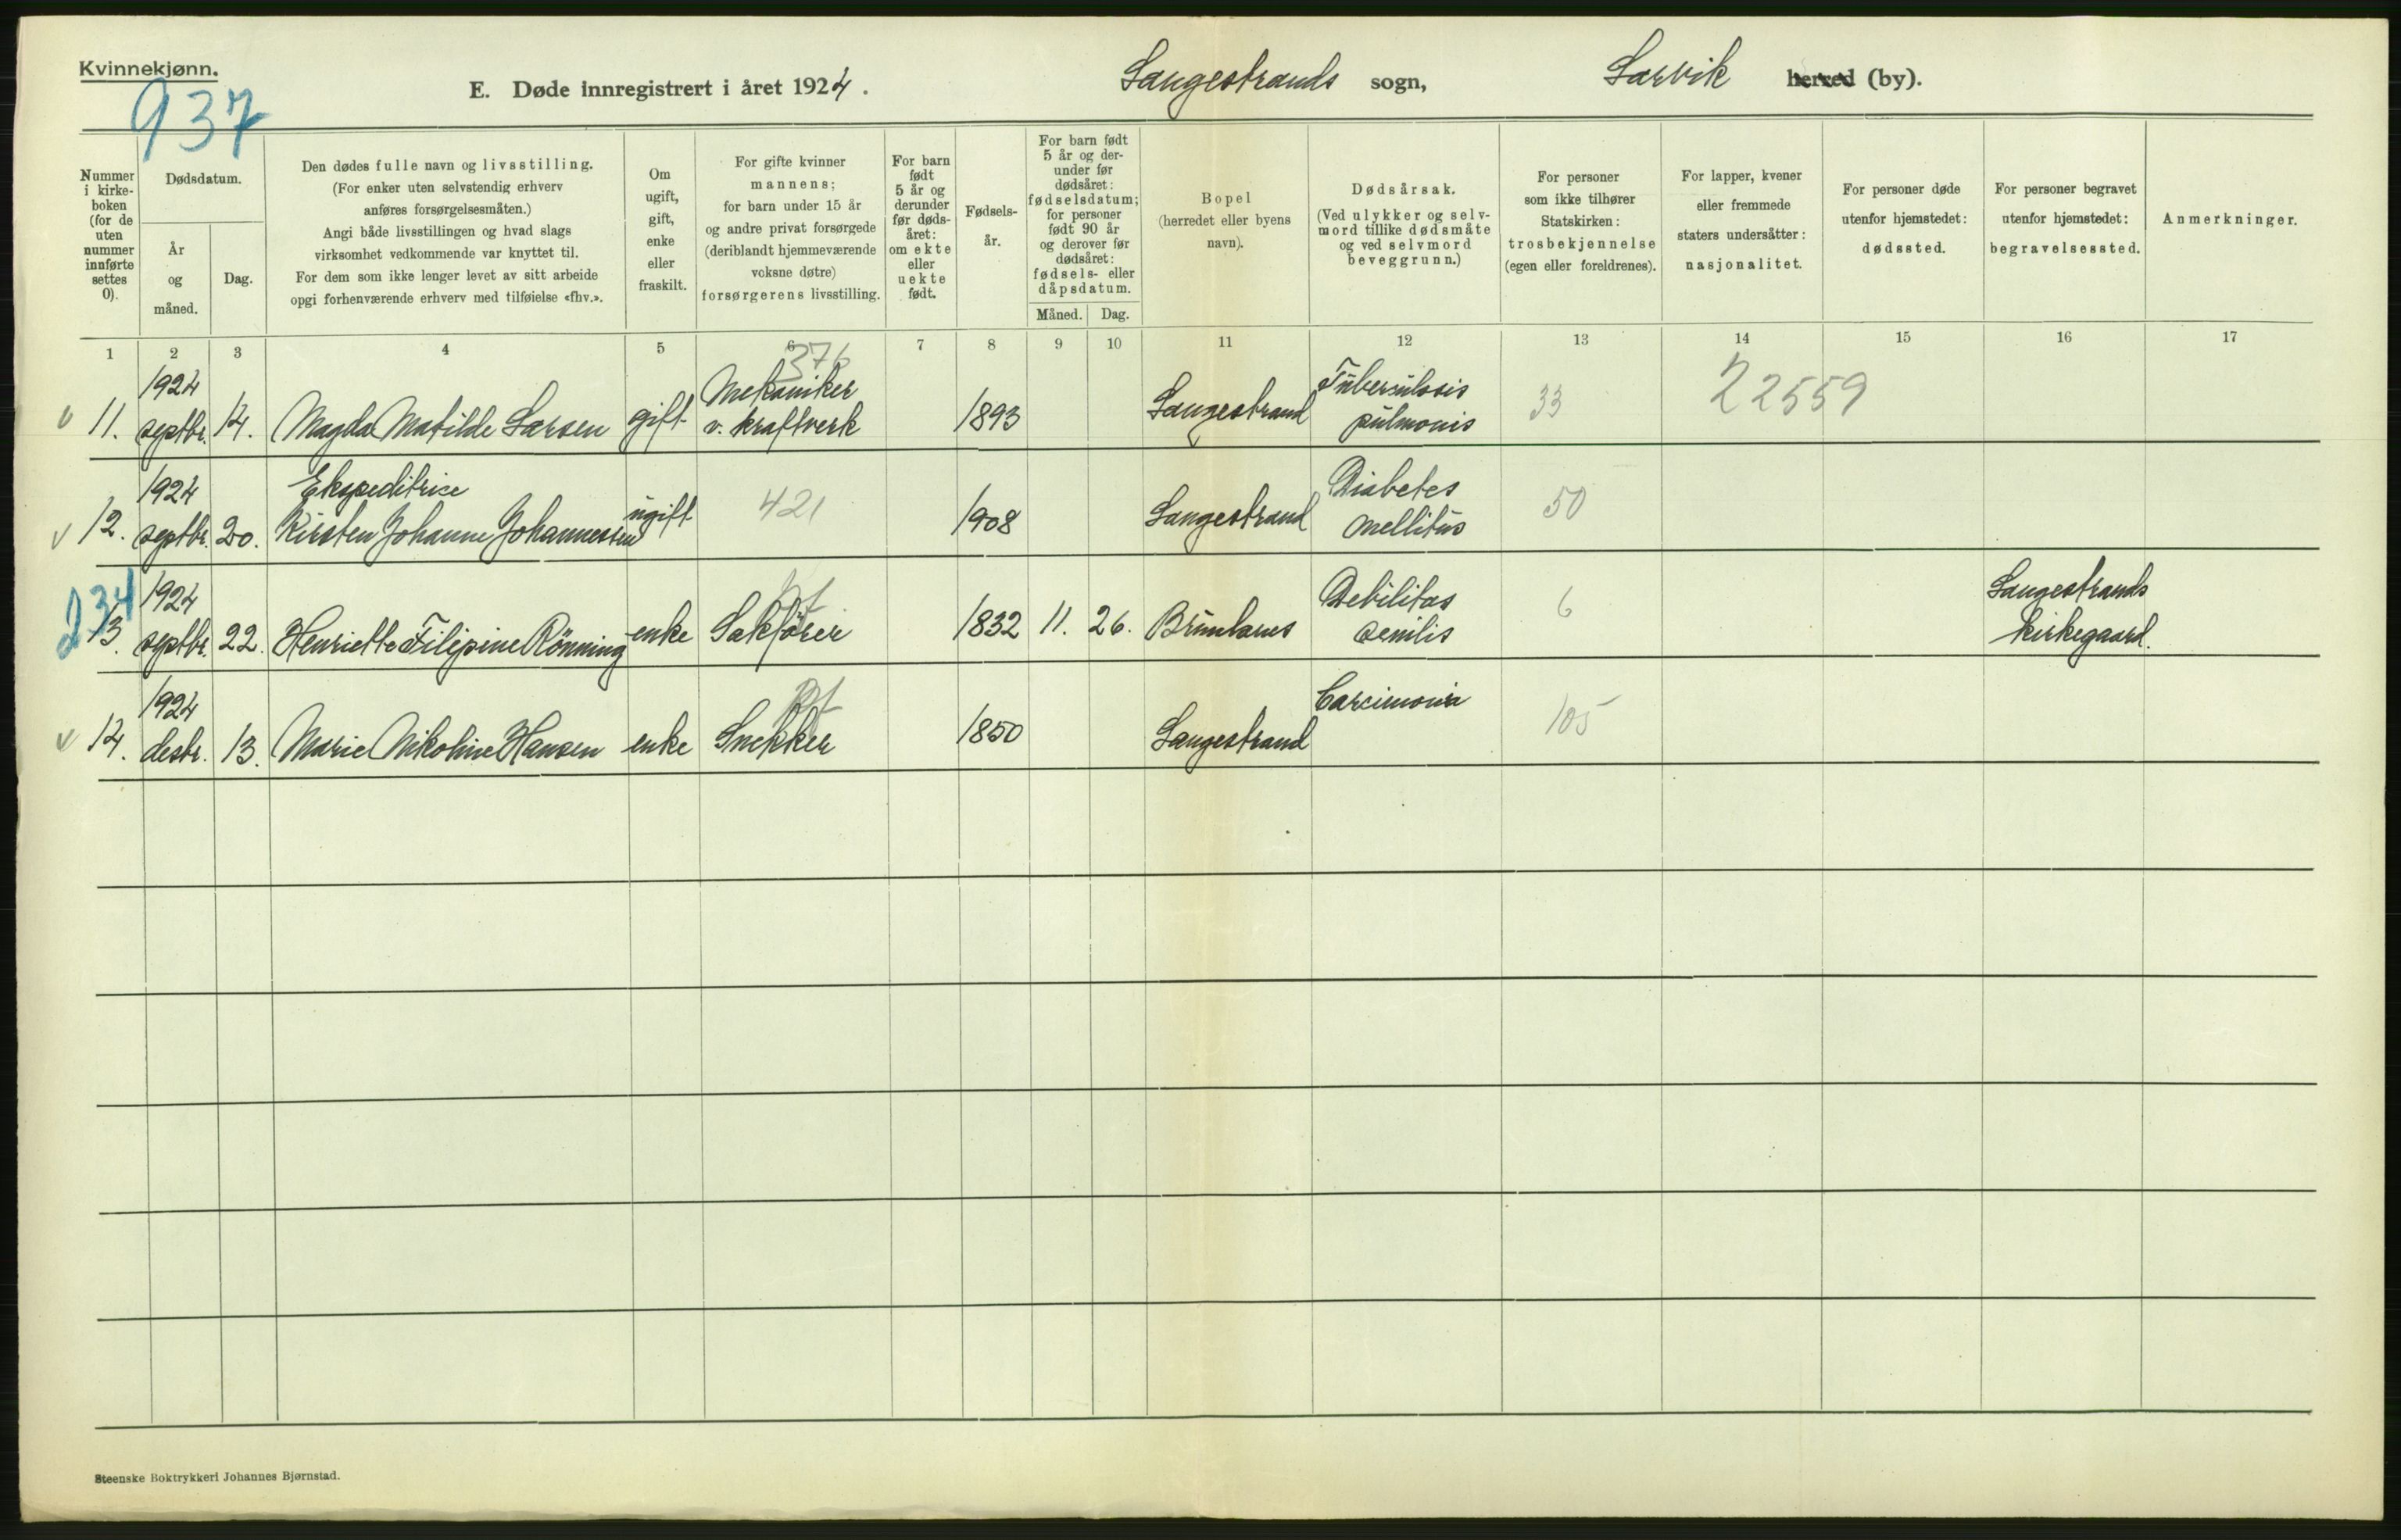 Kvinnekjønn.
937
E. Døde innregistrert i året 1924.
Langestrands sogn, Larvik herred (by).
Nummer i kirke- boken (for de uten nummer innførte settes 0).
Dødsdatum.
År og måned.
Dag.
Den dødes fulle navn og livsstilling.
(For enker uten selvstendig erhverv
anføres forsørgelsesmåten.)
Angi både livsstillingen og hvad slags
virksomhet vedkommende var knyttet til.
For dem som ikke lenger levet av sitt arbeide
opgi forhenværende erhverv med tilføielse «fhv.».
Om ugift, gift, enke eller fraskilt.
For gifte kvinner
mannens;
for barn under 15 år
og andre privat forsørgede
(deriblandt hjemmeværende
voksne døtre)
forsørgerens livsstilling.
For barn født 5 år og derunder før døds- året: om ekte eller uekte født.
Fødsels- år.
For barn født
5 år og der-
under før
dødsåret:
fødselsdatum;
for personer
født 90 år
og derover før
dødsåret:
fødsels- eller
dåpsdatum.
Måned. Dag.
Bopel
(herredet eller byens
navn).
Dødsårsak.
(Ved ulykker og selv-
mord tillike dødsmåte
og ved selvmord
beveggrunn.)
For personer
som ikke tilhører
Statskirken:
trosbekjennelse
(egen eller foreldrenes).
For lapper, kvener
eller fremmede
staters undersåtter:
nasjonalitet.
For personer døde
utenfor hjemstedet:
dødssted.
For personer begravet
utenfor hjemstedet:
begravelsessted.
Anmerkninger.
1 2 3 4 5 6 7 8 9 10 11 12 13 14 15 16 17
376
1924 Mekaniker Tuberculosis 22559
11. septbr. 14. Magda Matilde Larsen gift v. kraftverk 1893 Langestrand pulmonis 33
1924 Ekspeditrise Diabetes
12. septbr. 20. Kirsten Johanne Johannessen ugift 421 1908 Langestrand mellitus 50
234 1924 Debilitas Langestrands
13. septbr. 22. Henriette Filipine Rönning enke Sakförer 1832 11. 26. Brunlanes senilis 6 kirkegaard.
1924 Carcimonia
14. desbr. 13. Marie Nikoline Hansen enke Snekker 1850 Langestrand 105
Steenske Boktrykkeri Johannes Bjørnstad.